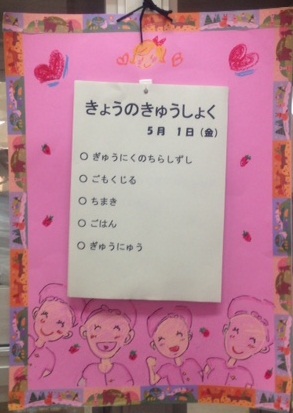 きょうのきゅうしょく
5月 1日(金)
○ ぎゅうにくのちらしずし
○ ごもくじる
○ ちまき
○ ごはん
○ ぎゅうにゅう